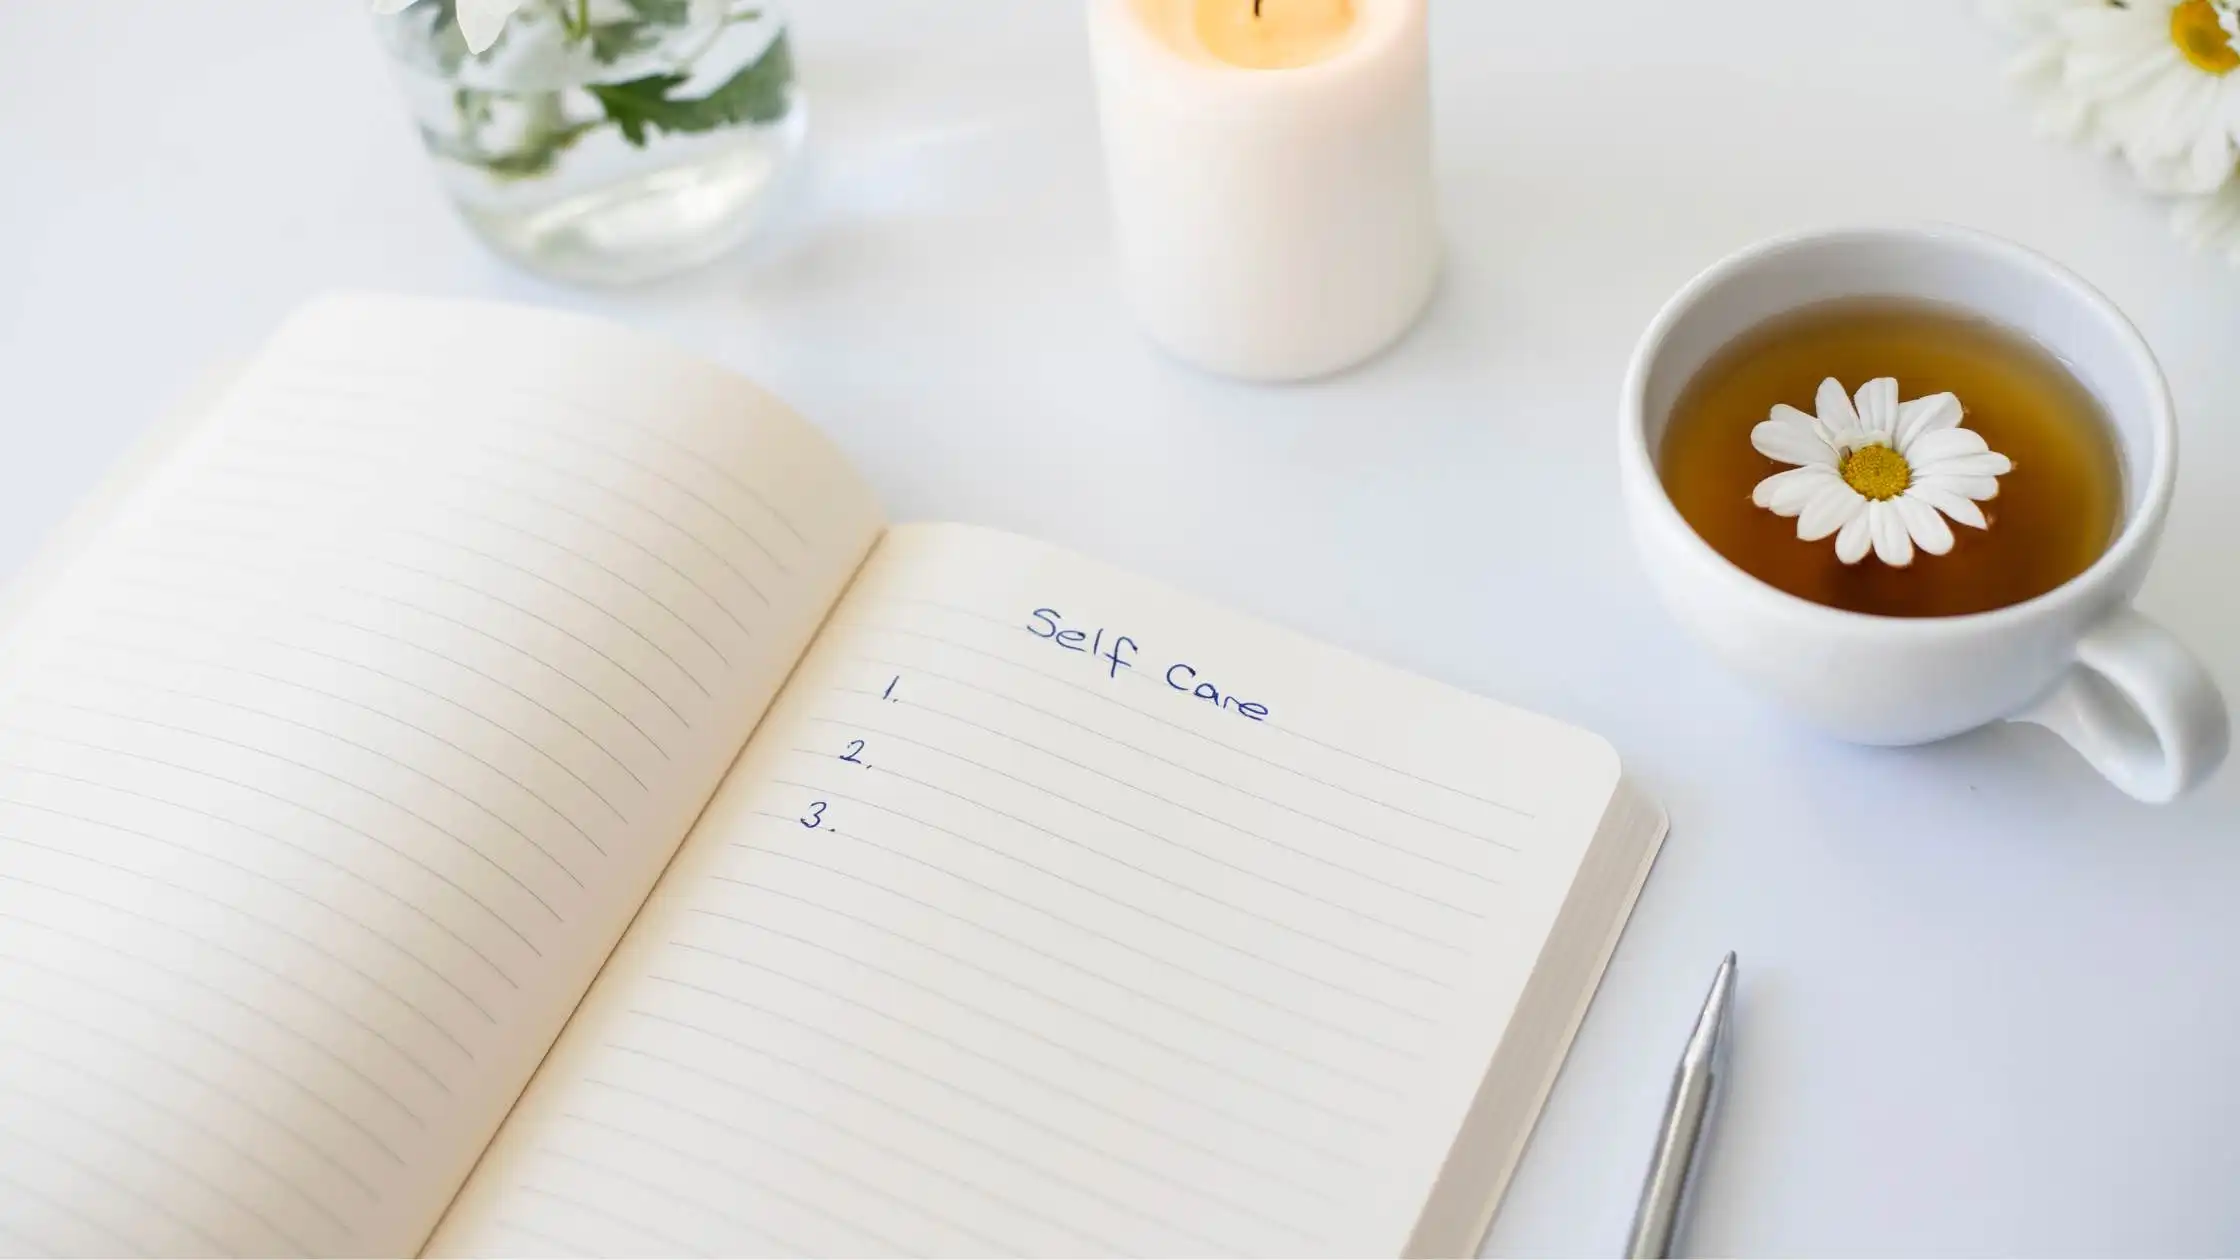 Self Care
1.
2.
3.